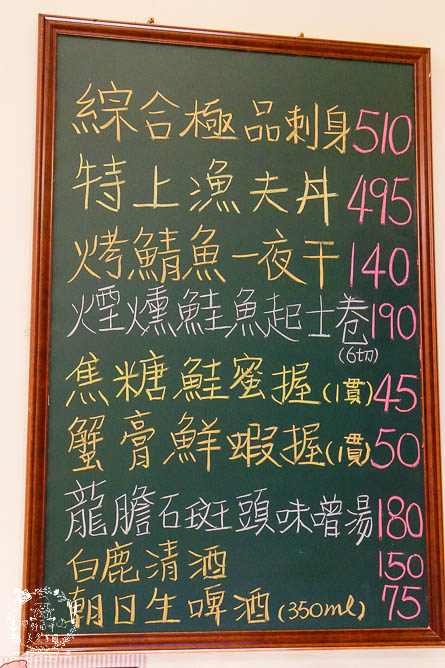 綜合極品刺身510
特上漁夫丼495
烤鯖魚一夜干140
煙燻鮭魚起士卷190
(6切)
焦糖鮭蜜握(1貫)45
蟹膏鮮蝦握(1貫)50
龍膽石斑頭味噌湯180
白鹿清酒150
朝日生啤酒(350ml)75